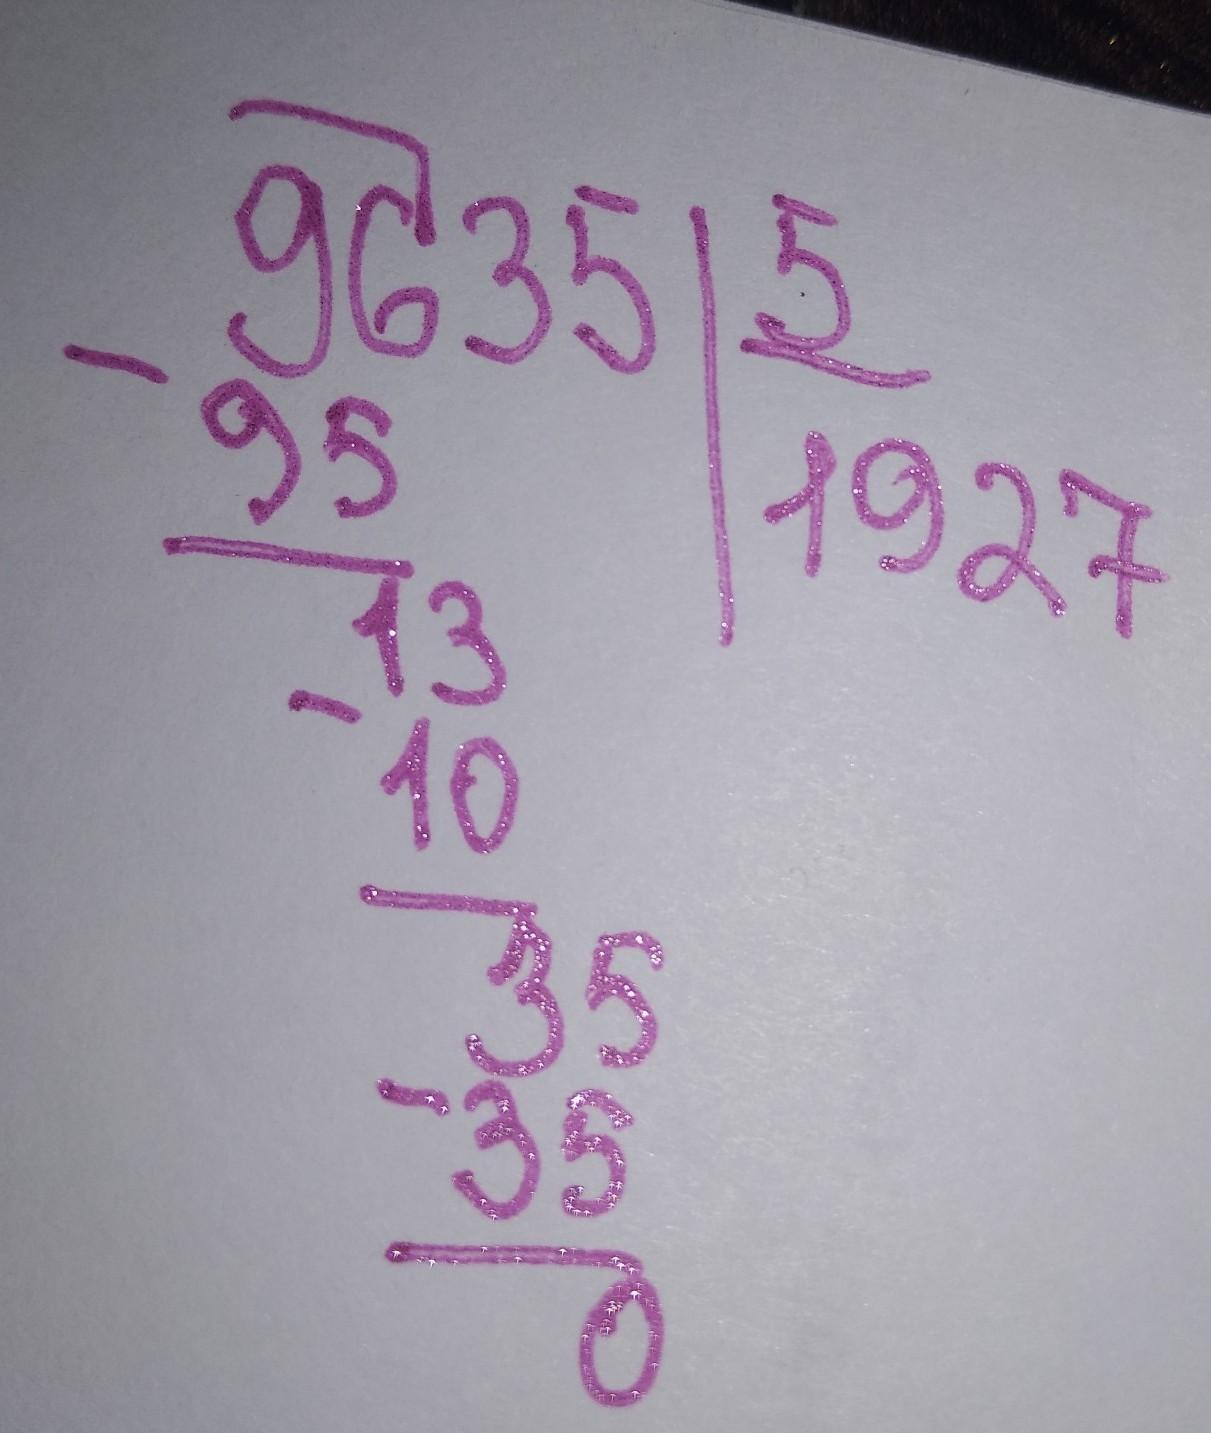 9635 | 5
- 95 1927
13
- 10
35
- 35
0